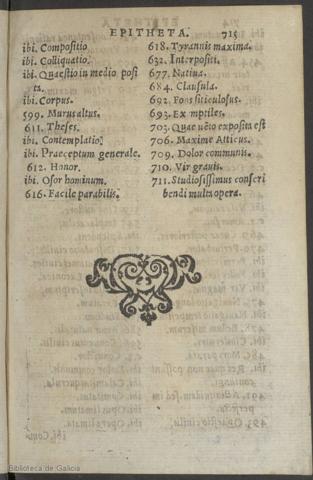 EPITHETA. 715
ibi. Compositio
ibi. Colliquatio.
ibi. Quæstio in medio posi
ta.
ibi. Corpus.
599. Murus altus.
611. Theses.
ibi. Contemplatio.
ibi. Praeceptum generale.
612. Honor.
ibi. Osor hominum.
616. Facile parabilis.
618. Tyrannis maxima.
632. Interpositi.
677. Natiua.
684. Clausula.
692. Fons siticulosus.
693. Exemptiles.
703. Quae uēto exposita est
706. Maxime Atticus.
709. Dolor communis.
710. Vir grauis.
711. Studiosissimus conscri
bendi multa opera.
Biblioteca de Galicia